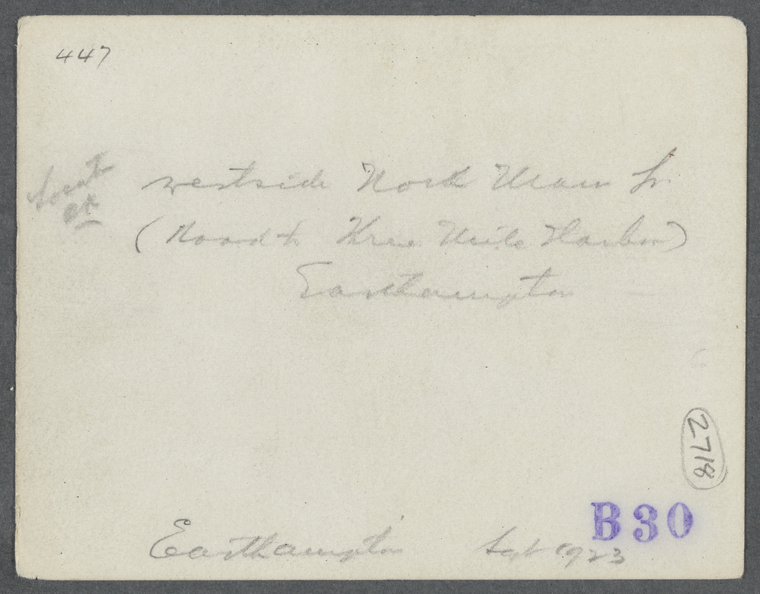 447
Locate
westside North Main St.
(Road to Three Mile Harbor)
Easthampton
2718
B30
Easthampton Sept 1923